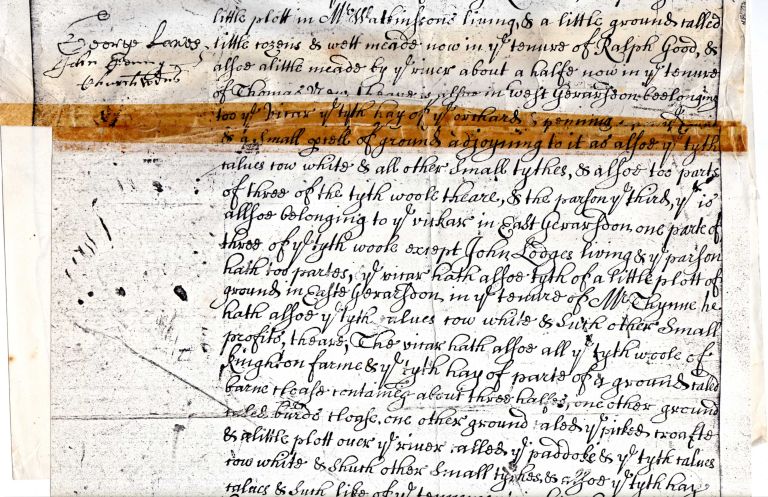 little plott in Mr Watkinsons living, & a little ground called
George
little rozens & wett meade now in ye tenure of Ralph Good, &
John
allsoe a little meade by ye river about a halfe now in ye tenure
Churchwdns
of Thomas theare is allsoe in west Gerarsdon beelonging
too ye vicar ye tyth hay of ye orchard
& a small prcell of ground adjoyning to it as allsoe ye tyth
calves cow white & all other small tythes, & allsoe too parts
of three of the tyth woole theare, & the parson ye third, yr is
allsoe belonging to ye vickar in East Gerarsdon one parte of
three of ye tyth woole except John Lodges living & ye parson
hath too partes, ye vicar hath allsoe tyth of a little plott of
ground in Easte Gerarsdon in ye tenure of Mr Thynne he
hath allsoe ye tyth calves cow white & such other small
profits, theare, The vicar hath allsoe all ye tyth woole of
Knighton farme & ye tyth hay of parte of a ground caled
barne close containeing about three halfes, one other ground
caled burds close, one other ground caled ye picked croafte
& a little plott over ye river called ye paddoke & ye tyth calves
cow white & shuch other small tythes, & allsoe ye tyth hay
calves & such like of ye